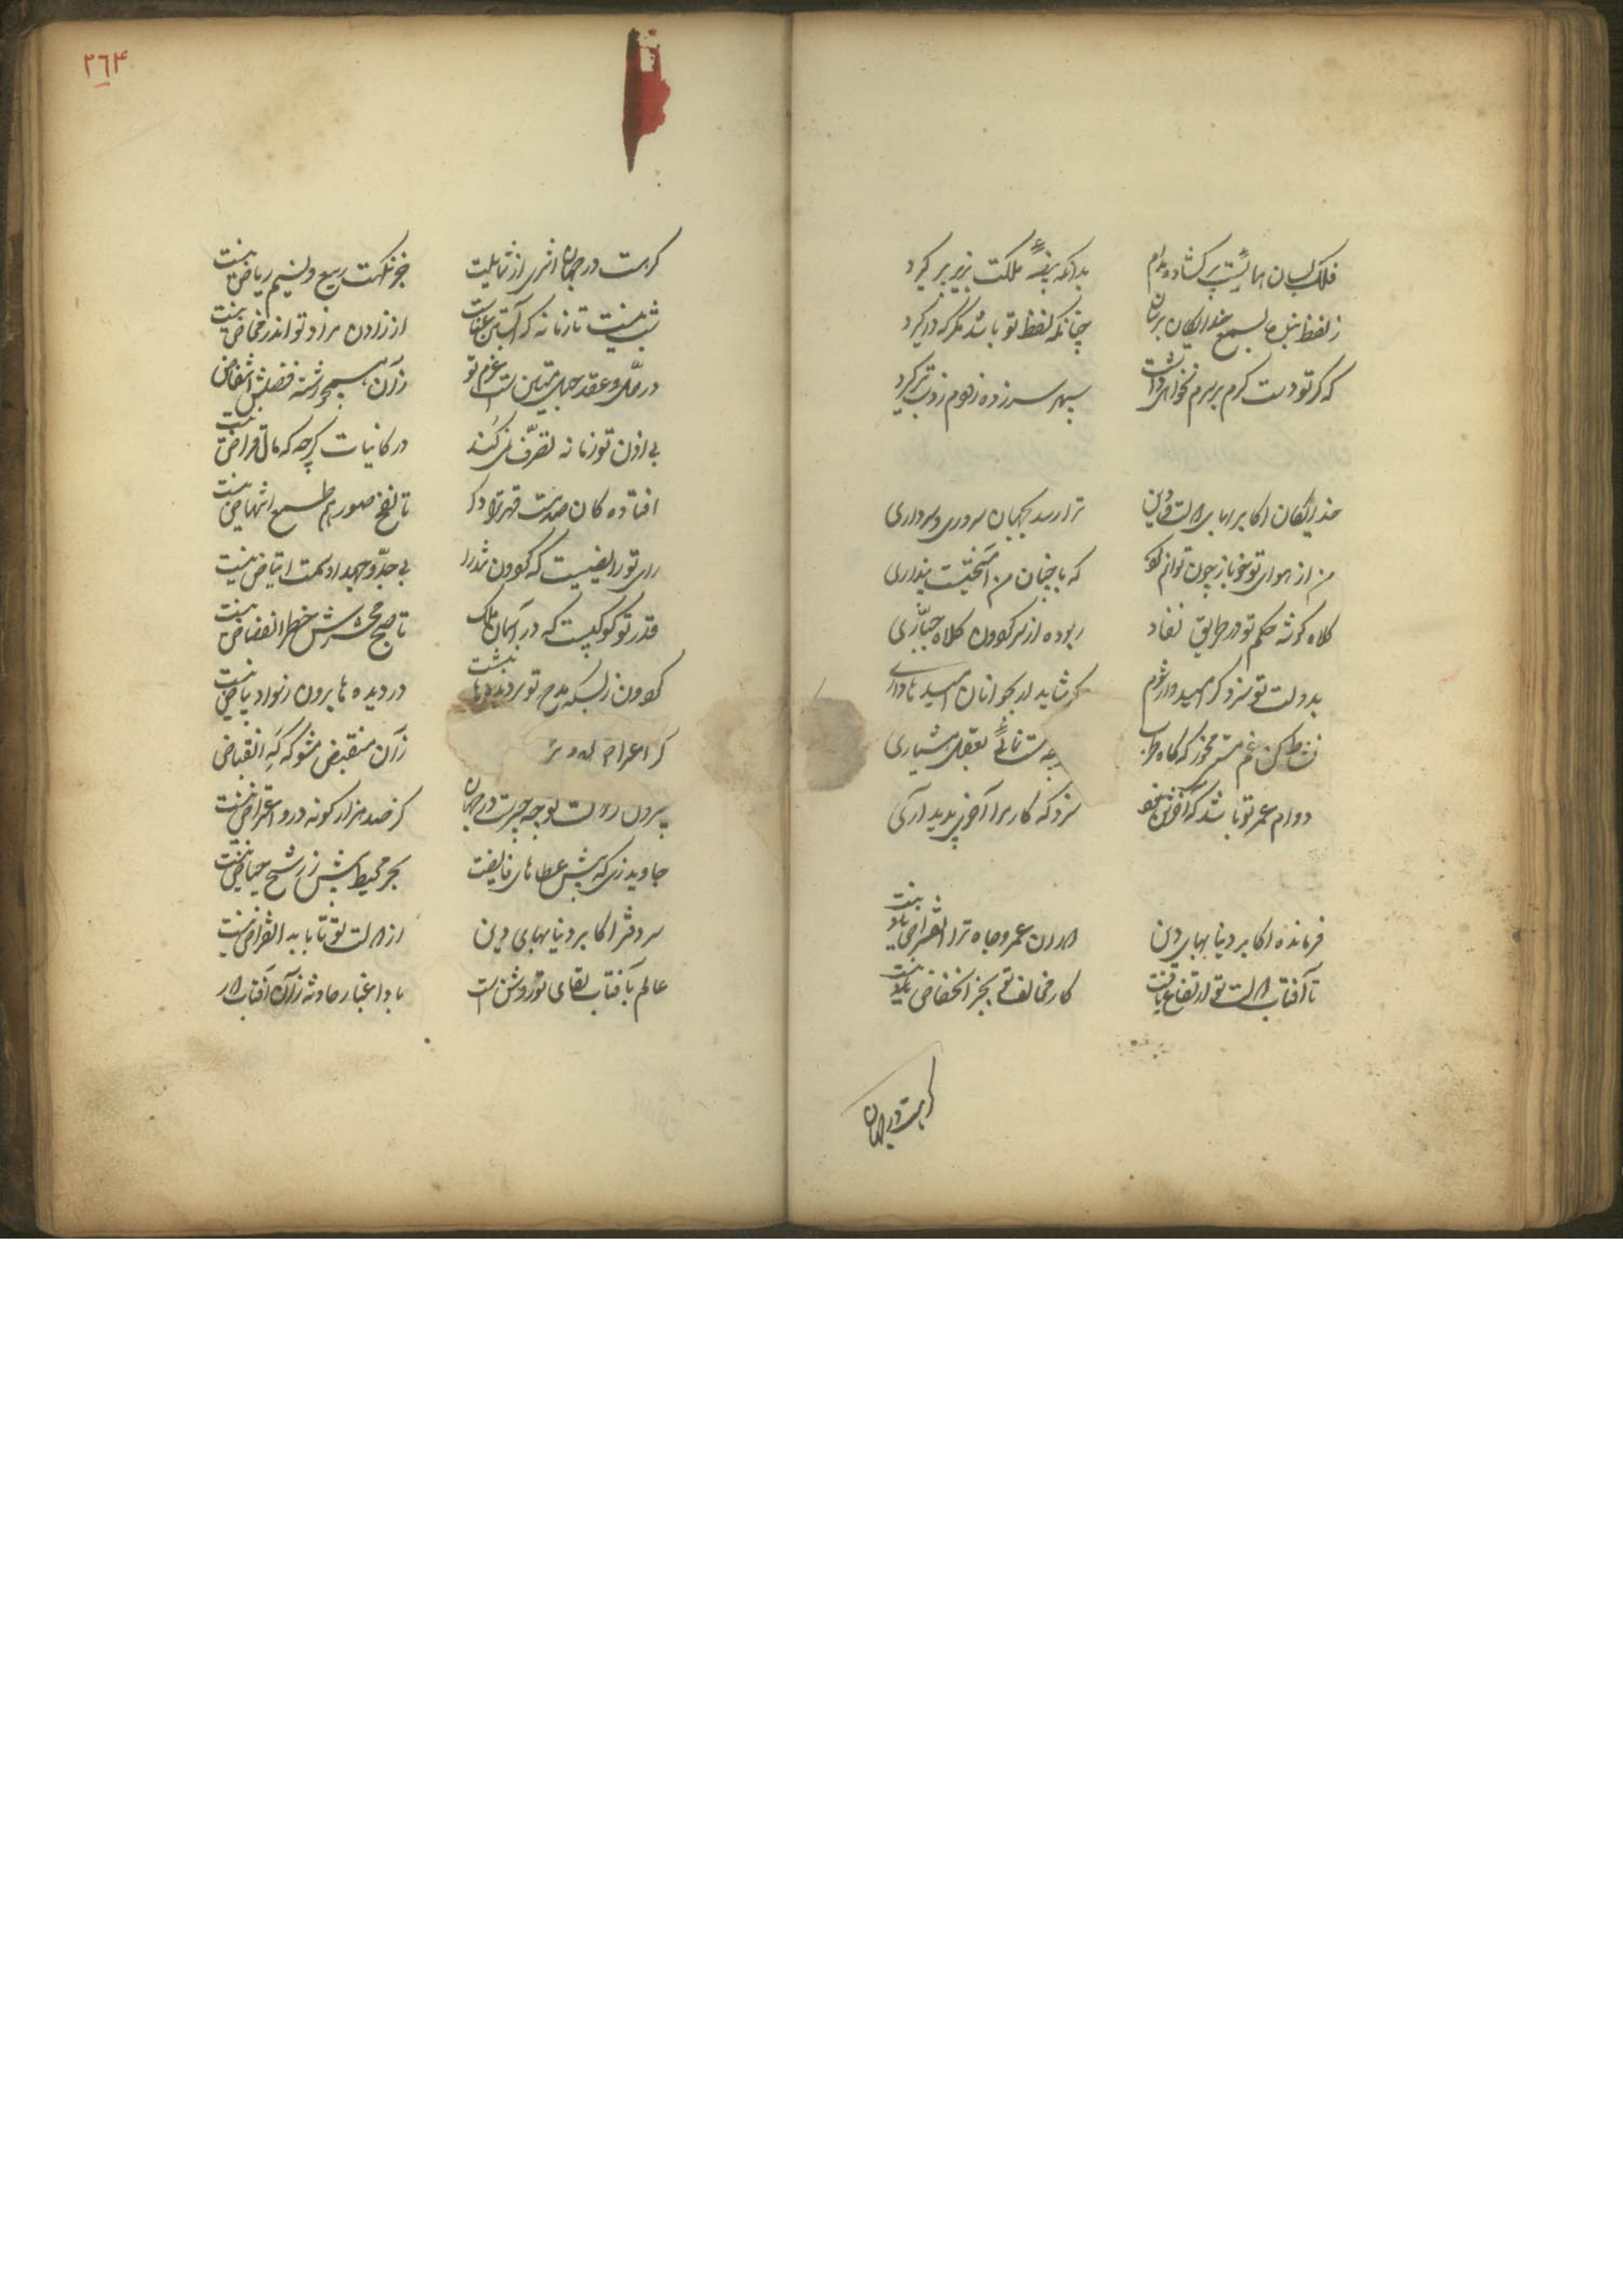 فلک بسان همائیست پر کشاده مدام
بدانکه بیضهٔ ملکت بزیر پر گیرد
ز لفظ بنده بسمع خدایگان برسان
چنانکه لفظ تو باشد مگر که درگیرد
که گر تو دست کرم بر سرم نخواهی داشت
سپهر سرزده زهوم زود تر گیرد
خدایگان اکابر بهای دولت و دین
ترا رسد بجهان سروری و سرداری
من از هوای تو خو باز چون توانم کرد
که با جنان من آمیختست پنداری
کلاه گوشه حکم تو در طریق نفاد
ربوده از سر گردون کلاه جباری
بدولت تو سزد گر امیدوار شوم
که شاید ار بجوانان امیدها داری
نشاط کن غم مخور که گاه طرب
بعقل هشیاری
دوام عمر تو باشد که آخرش
سزد که کار مرا آخری پدید آری
فرمانده اکابر دنیا بهای دین
دوران عمر و جاه ترا انقراض نیست
تا آفتاب دولت تو ارتفاع یافت
کار مخالف تو بجز انخفاض نیست
گر هست در جهان
٢٦۴
گر هست در جهان اثری از شمایلت
جز نکهت ربیع و نسیم ریاض نیست
شب نیست تا زمانه که آبستن عناست
از زادن مراد تو اندر مخاض نیست
در حل و عقد حبل متین است عزم تو
زان هیچ رشته فضلش انتقاض
بی اذن تو زمانه تصرف نمی‌کند
در کاینات گرچه که مالی قراض نیست
افتاده کان صدمت قهر ترا دگر
تا نفخ صور هم طمع انتهاض نیست
رای تو رایضیست که گردون تند را
بی جد و جهد او سمت ارتیاض نیست
قدر تو کوکبیست که در آسمان ملک
تا صبح محشرش خطر انقضاض نیست
گردون ز بسکه مدح تو بر دیده‌ها نبشت
در دیده ها برون ز سواد بیاض نیست
گر
زان منقبض مشو که گه انقباض
بیرون دولت تو چه چیزست در جهان
کز صد هزار گونه درو اعتراض نیست
جاوید زی که پیش عطاهای فایضت
بحر محیط بیش ز رشح حیاض نیست
سر دفتر اکابر دنیا بهای دین
از دولت تو تا بابد انقراض نیست
عالم بآفتاب لقای تو روشن است
بادا غبار حادثه زان آفتاب دور